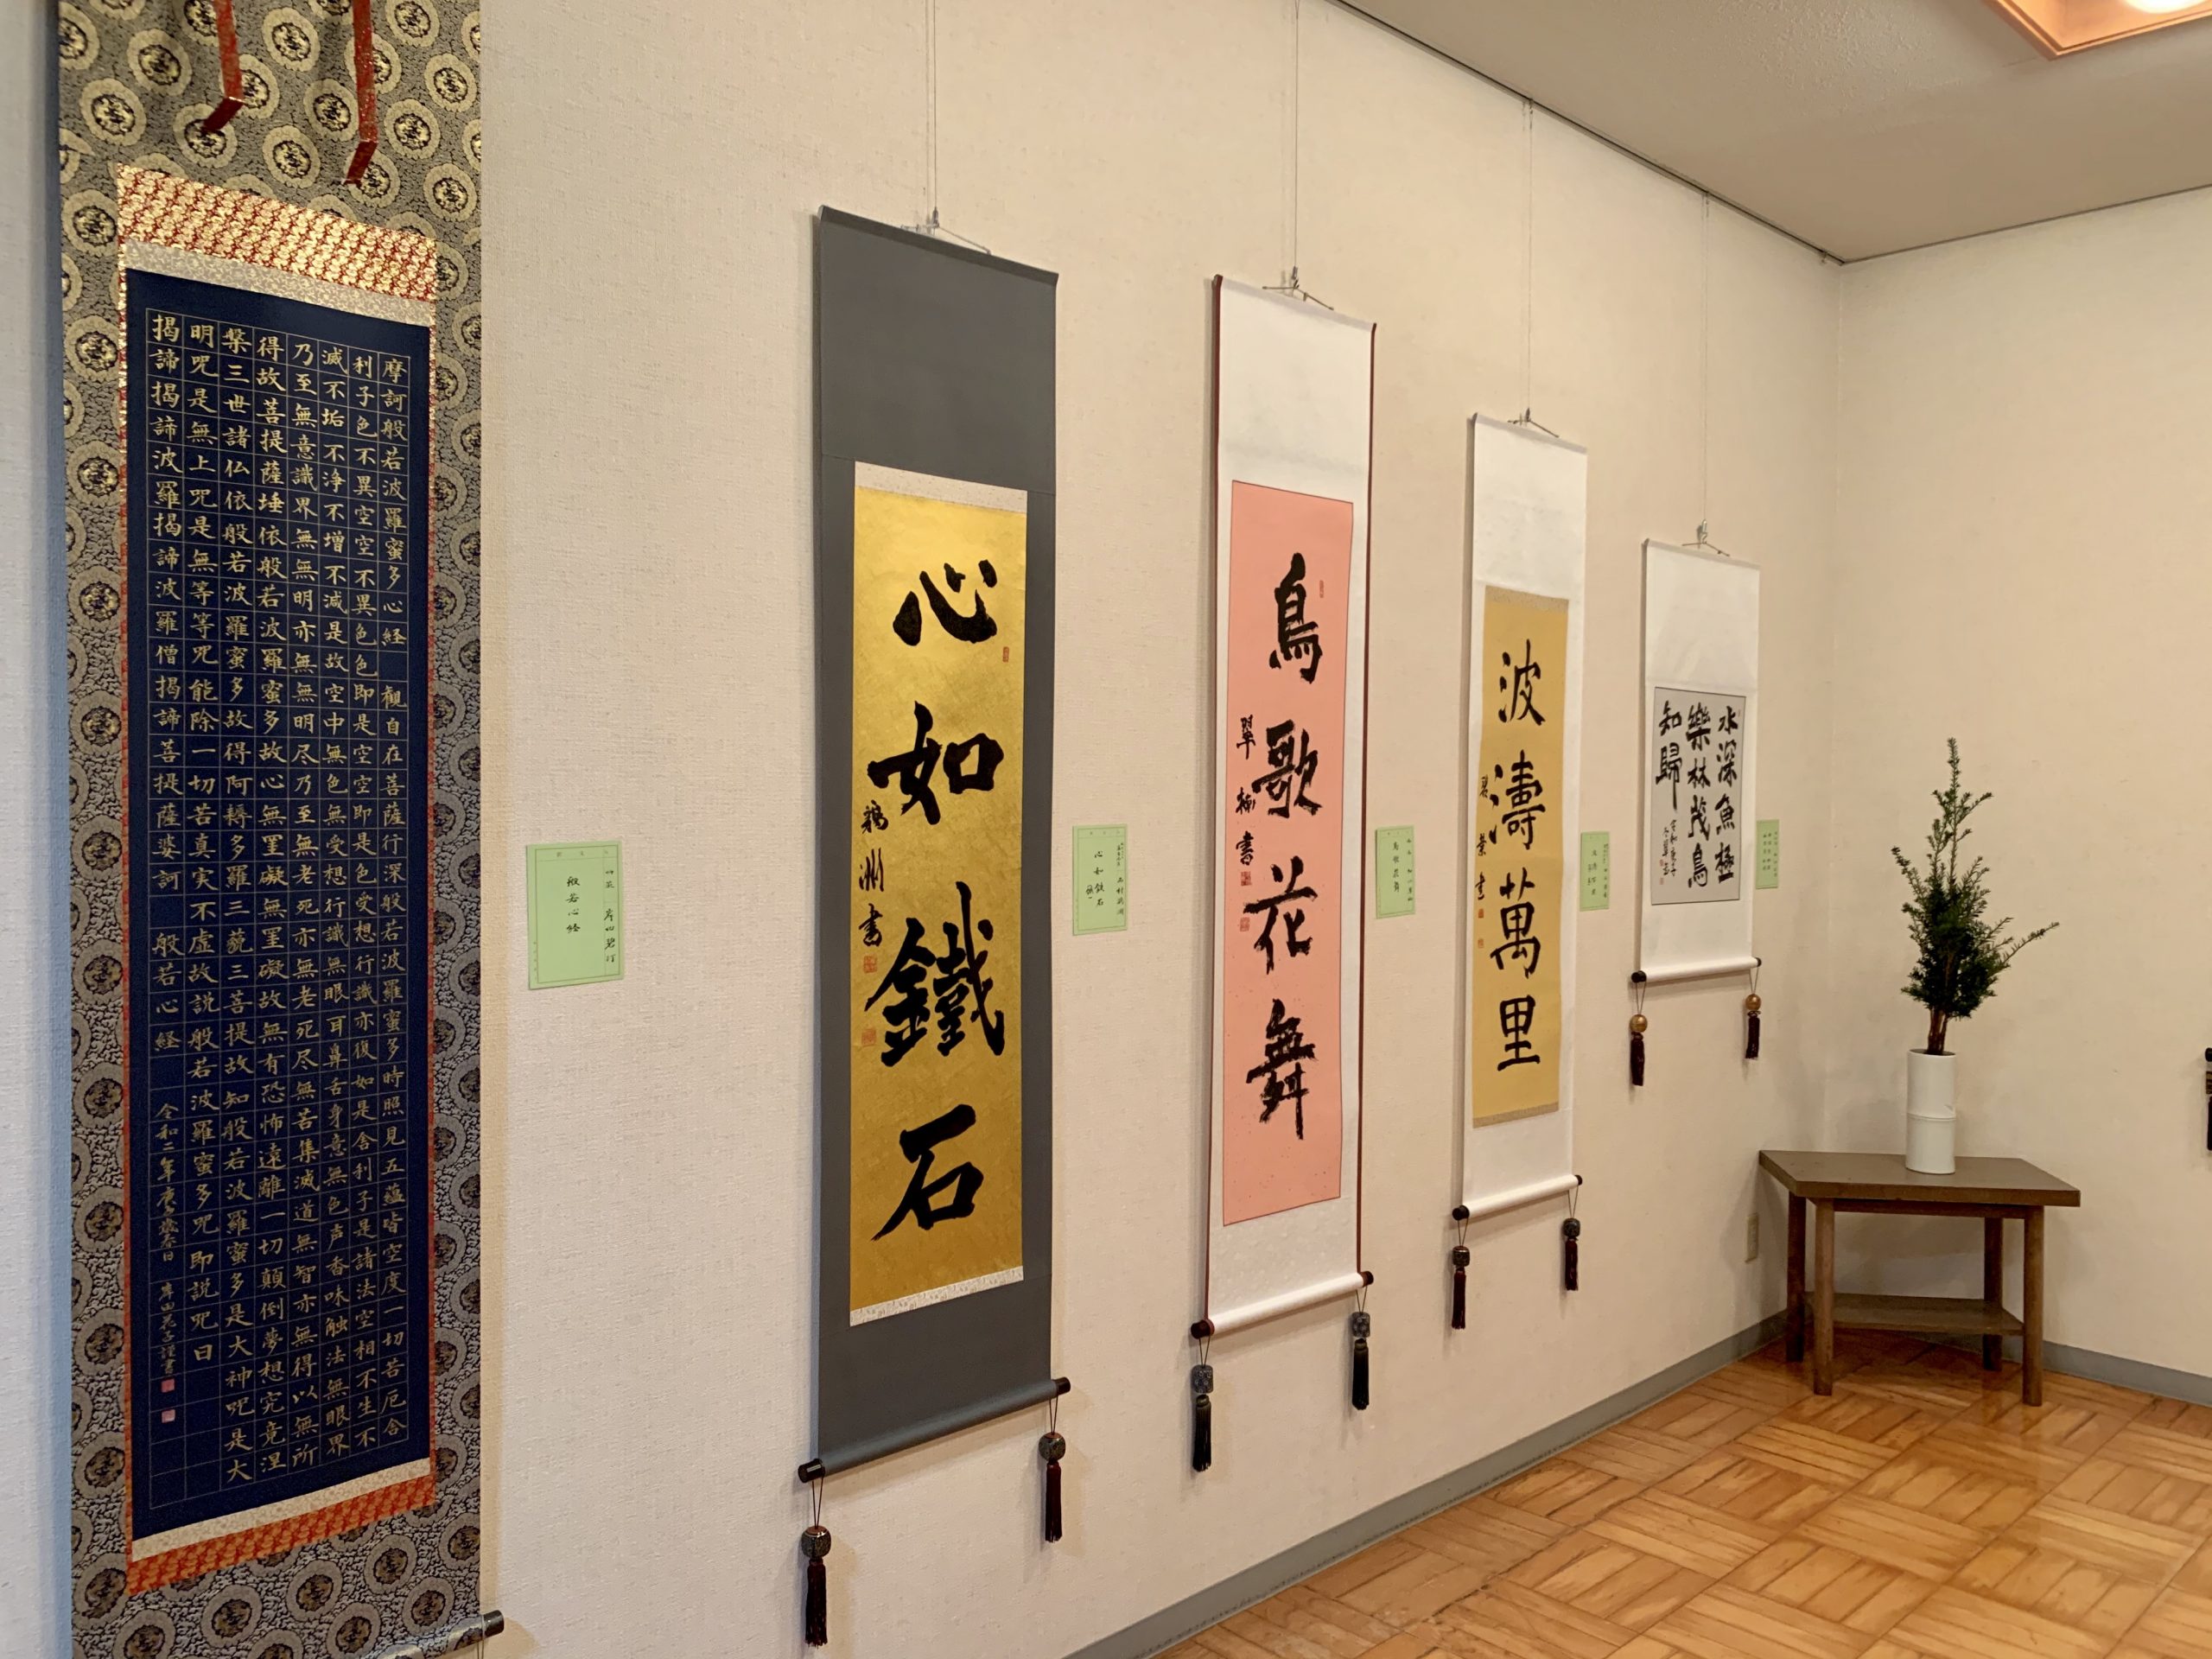 摩訶般若波羅蜜多心経 観自在菩薩行深般若波羅蜜多時照見五蘊皆空度一切苦厄舎
利子色不異空空不異色色即是空空即是色受想行識亦復如是舎利子是諸法空相不生不
滅不垢不浄不増不減是故空中無色無受想行識無眼耳鼻舌身意無色声香味触法無眼界
乃至無意識界無無明亦無無明尽乃至無老死亦無老死尽無苦集滅道無智亦無得以無所
得故菩提薩埵依般若波羅蜜多故心無罣礙無罣礙故無有恐怖遠離一切顛倒夢想究竟涅
槃三世諸仏依般若波羅蜜多故得阿耨多羅三藐三菩提故知般若波羅蜜多是大神呪是大
明呪是無上呪是無等等呪能除一切苦真実不虚故説般若波羅蜜多呪即説呪曰
揭諦揭諦波羅揭諦波羅僧揭諦菩提薩婆訶 般若心経 令和二年庚子歳春日
般若心経
心如鐵石
鵜洲書
心如鉄石
鳥歌花舞
翠柳書
鳥歌花舞
波濤萬里
葉書
水深魚極
樂林茂鳥
知歸